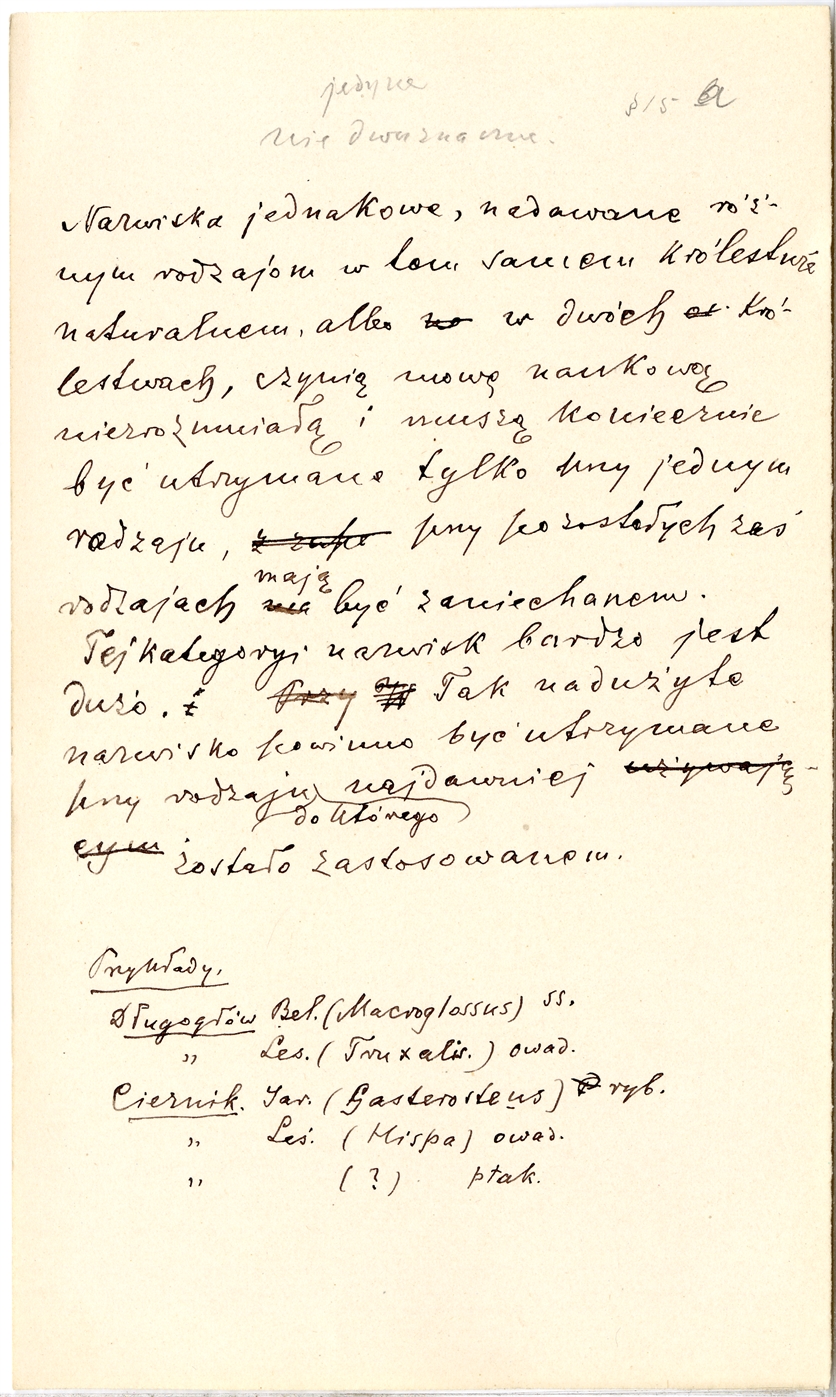 jedyne
§ 15 a
nie dwuznaczne.
Nazwiska jednakowe, nadawane róż-
nym rodzajom w tem samem Królestwie
naturalnem, albo na w dwóch Kró-
lestwach, czynią mową naukową
niezrozumiałą i muszą koniecznie
być utrzymane tylko przy jednym
rodzaju, z zupe przy pozostałych zaś
mają
rodzajach ma być zaniechanem.
Tej kategoryi nazwisk bardzo jest
dużo. Przy W Tak nadużyte
nazwisko powinno być utrzymane
przy rodzaju najdawniej używają-
do którego
cym zostało zastosowanem.
Przykłady.
Długogłów Beł. (Macroglossus) ss.
" Leś. (Truxalis.) owad.
Ciernik. Jar. (Gasterosteus) ryb.
" Leś. (Hispa) owad.
" (?) ptak.